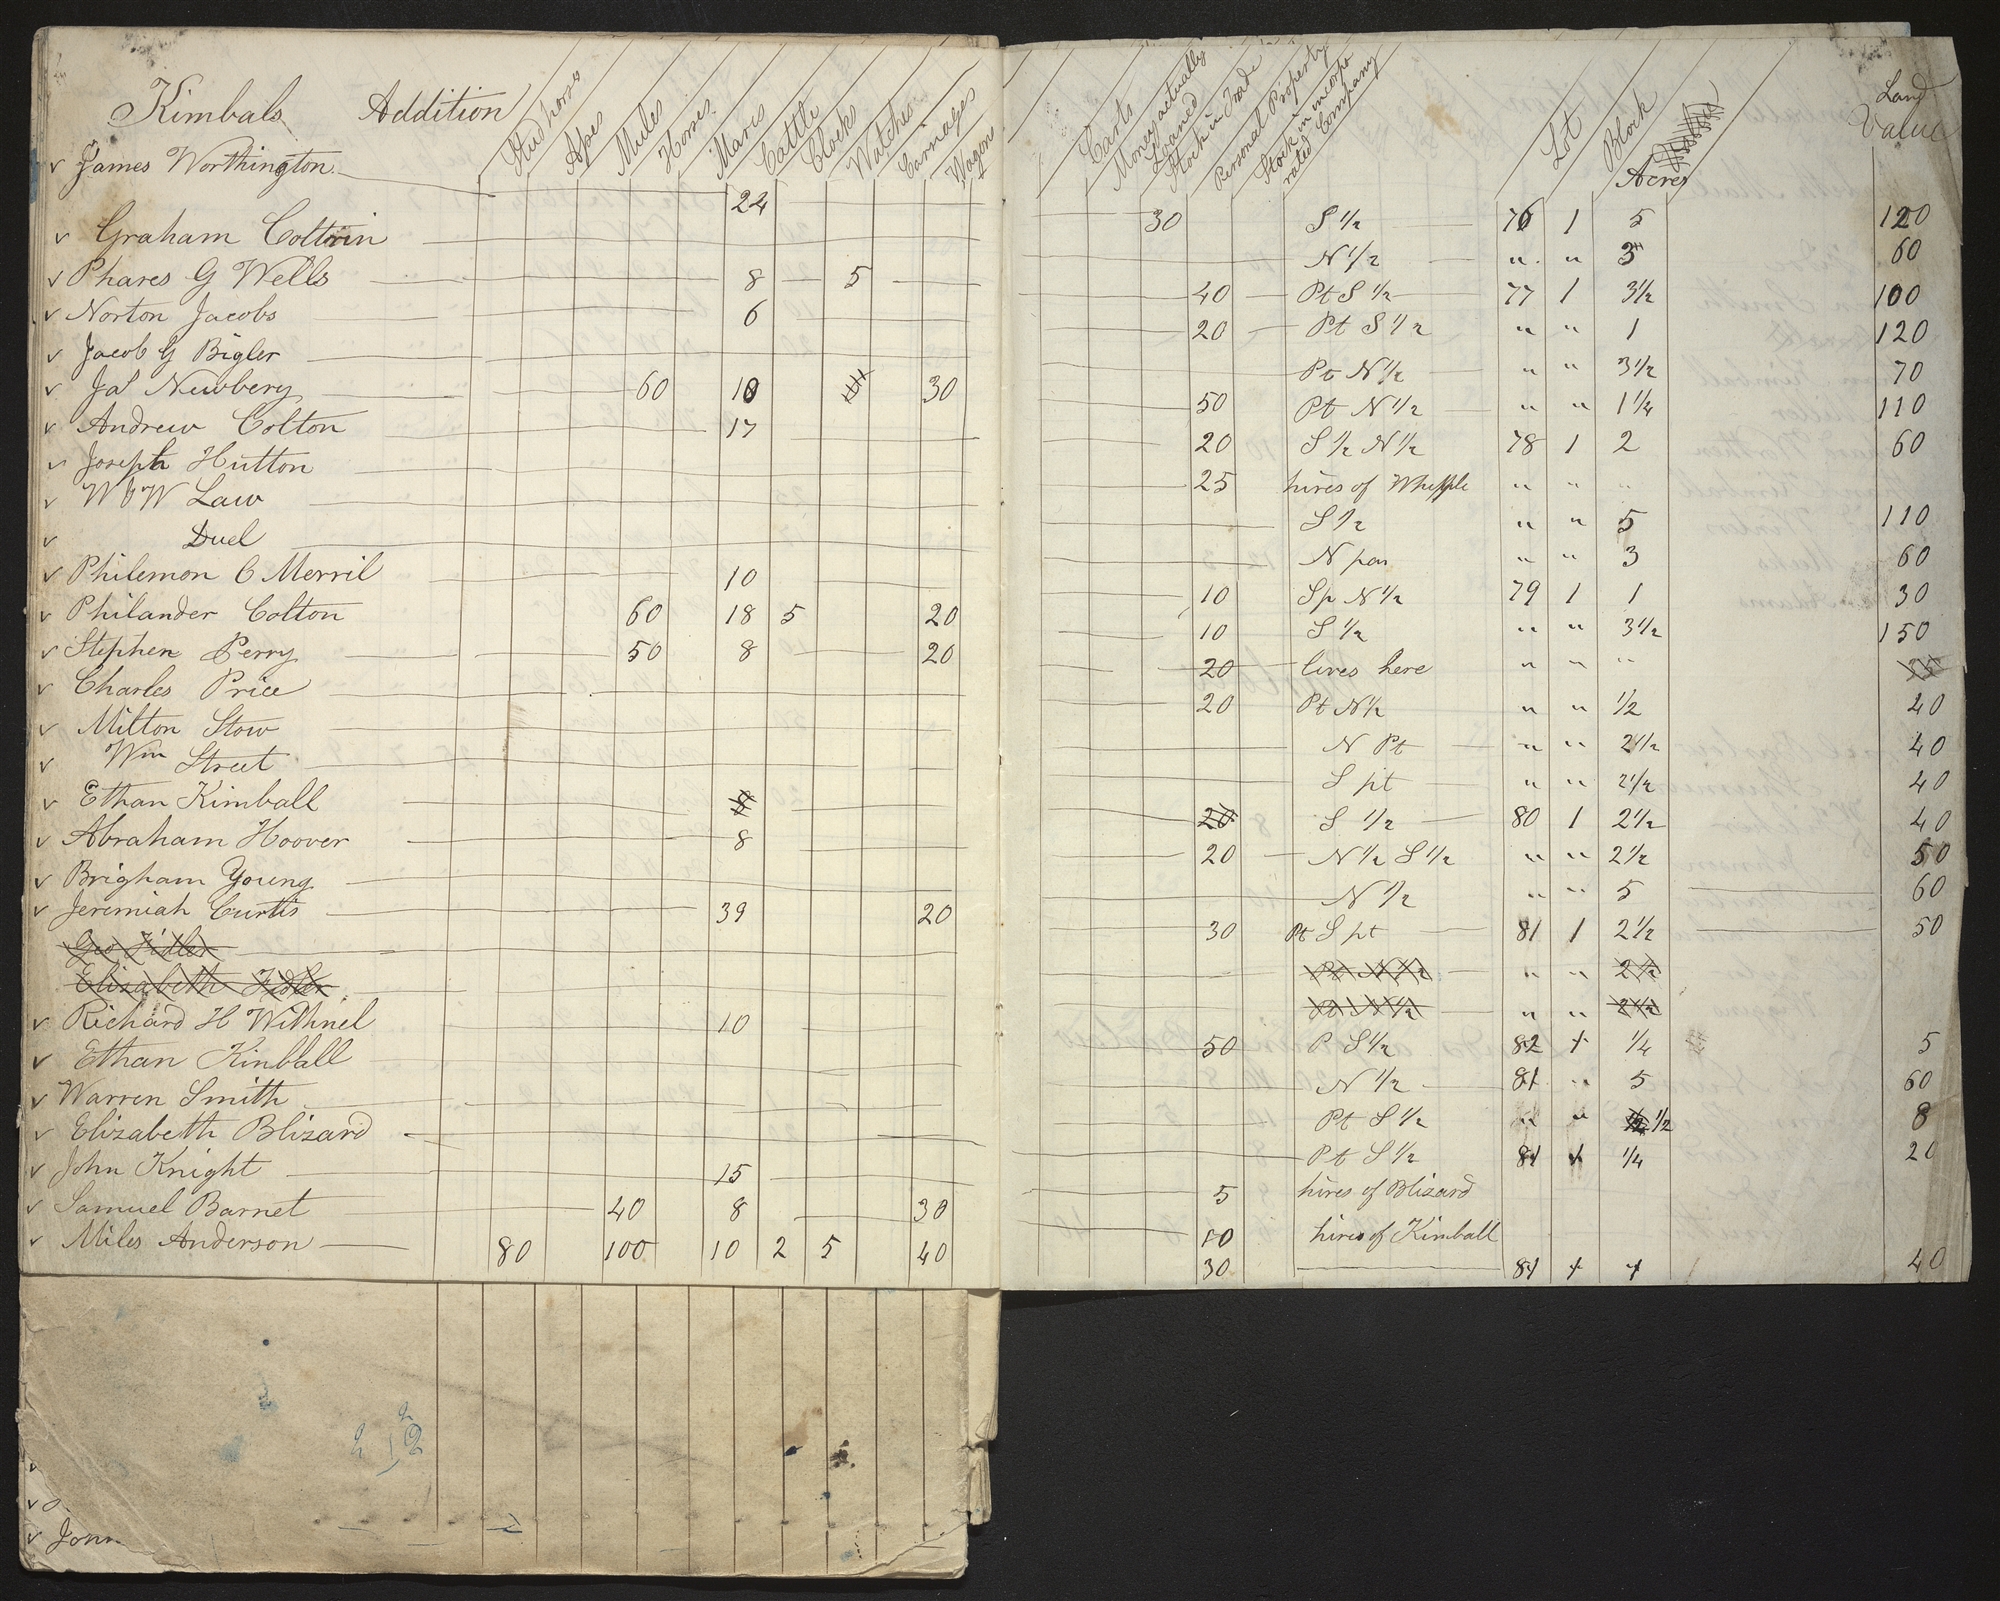 Kimbals Addition
Stud horses Apes Mules Horses Mares Cattle Clocks Watches Carriages Wagon Carts Money actually Loand Stock in Trade Personal Property Stock in incorporated Company Lot Block Acres Land Value
v James Worthington 24 30 S 1/2 76 1 5 120
v Graham Coltrin N 1/2 " " 3 60
v Phares G Wells 8 5 40 Pt S 1/2 77 1 3 1/2 100
v Norton Jacobs 6 20 Pt S 1/2 " " 1 120
v Jacob G Bigler Pt N 1/2 " " 3 1/2 70
v Jas Newbery 60 10 30 50 Pt N 1/2 " " 1 1/4 110
v Andrew Colton 17 20 S 1/2 N 1/2 78 1 2 60
v Joseph Hutton 25 hires of Whipple " " "
v W & W Law S 1/2 " " 5 110
v Duel N par " " 3 60
v Philemon C Merril 10 10 Sp N 1/2 79 1 1 30
v Philander Colton 60 18 5 20 10 S 1/2 " " 3 1/2 150
v Stephen Perry 50 8 20 20 lives here " " " 35
v Charles Price 20 Pt N 1/2 " " 1/2 40
v Milton Stow N Pt " " 2 1/2 40
v Wm Street S pt " " 2 1/2 40
v Ethan Kimball 8 20 S 1/2 80 1 2 1/2 40
v Abraham Hoover 8 20 N 1/2 S 1/2 " " 2 1/2 50
v Brigham Young N 1/2 " " 5 60
v Jeremiah Curtis 39 20 30 Pt S pt 81 1 2 1/2 50
Geo Fidler Pt N 1/2 " " 2 1/2
Elizabeth Fidler Pt N 1/2 " " 2 1/2
v Richard H Withnel 10 50 P S 1/2 82 + 1/4 5
v Ethan Kimball N 1/2 81 " 5 60
v Warren Smith Pt S 1/2 " " 1/2 8
v Elizabeth Blizard Pt S 1/2 81 + 1/4 20
v John Knight 15 5 hires of Blizard
v Samuel Barnet 40 8 30 10 hires of Kimball
v Miles Anderson 80 100 10 2 5 40 30 81 + + 40